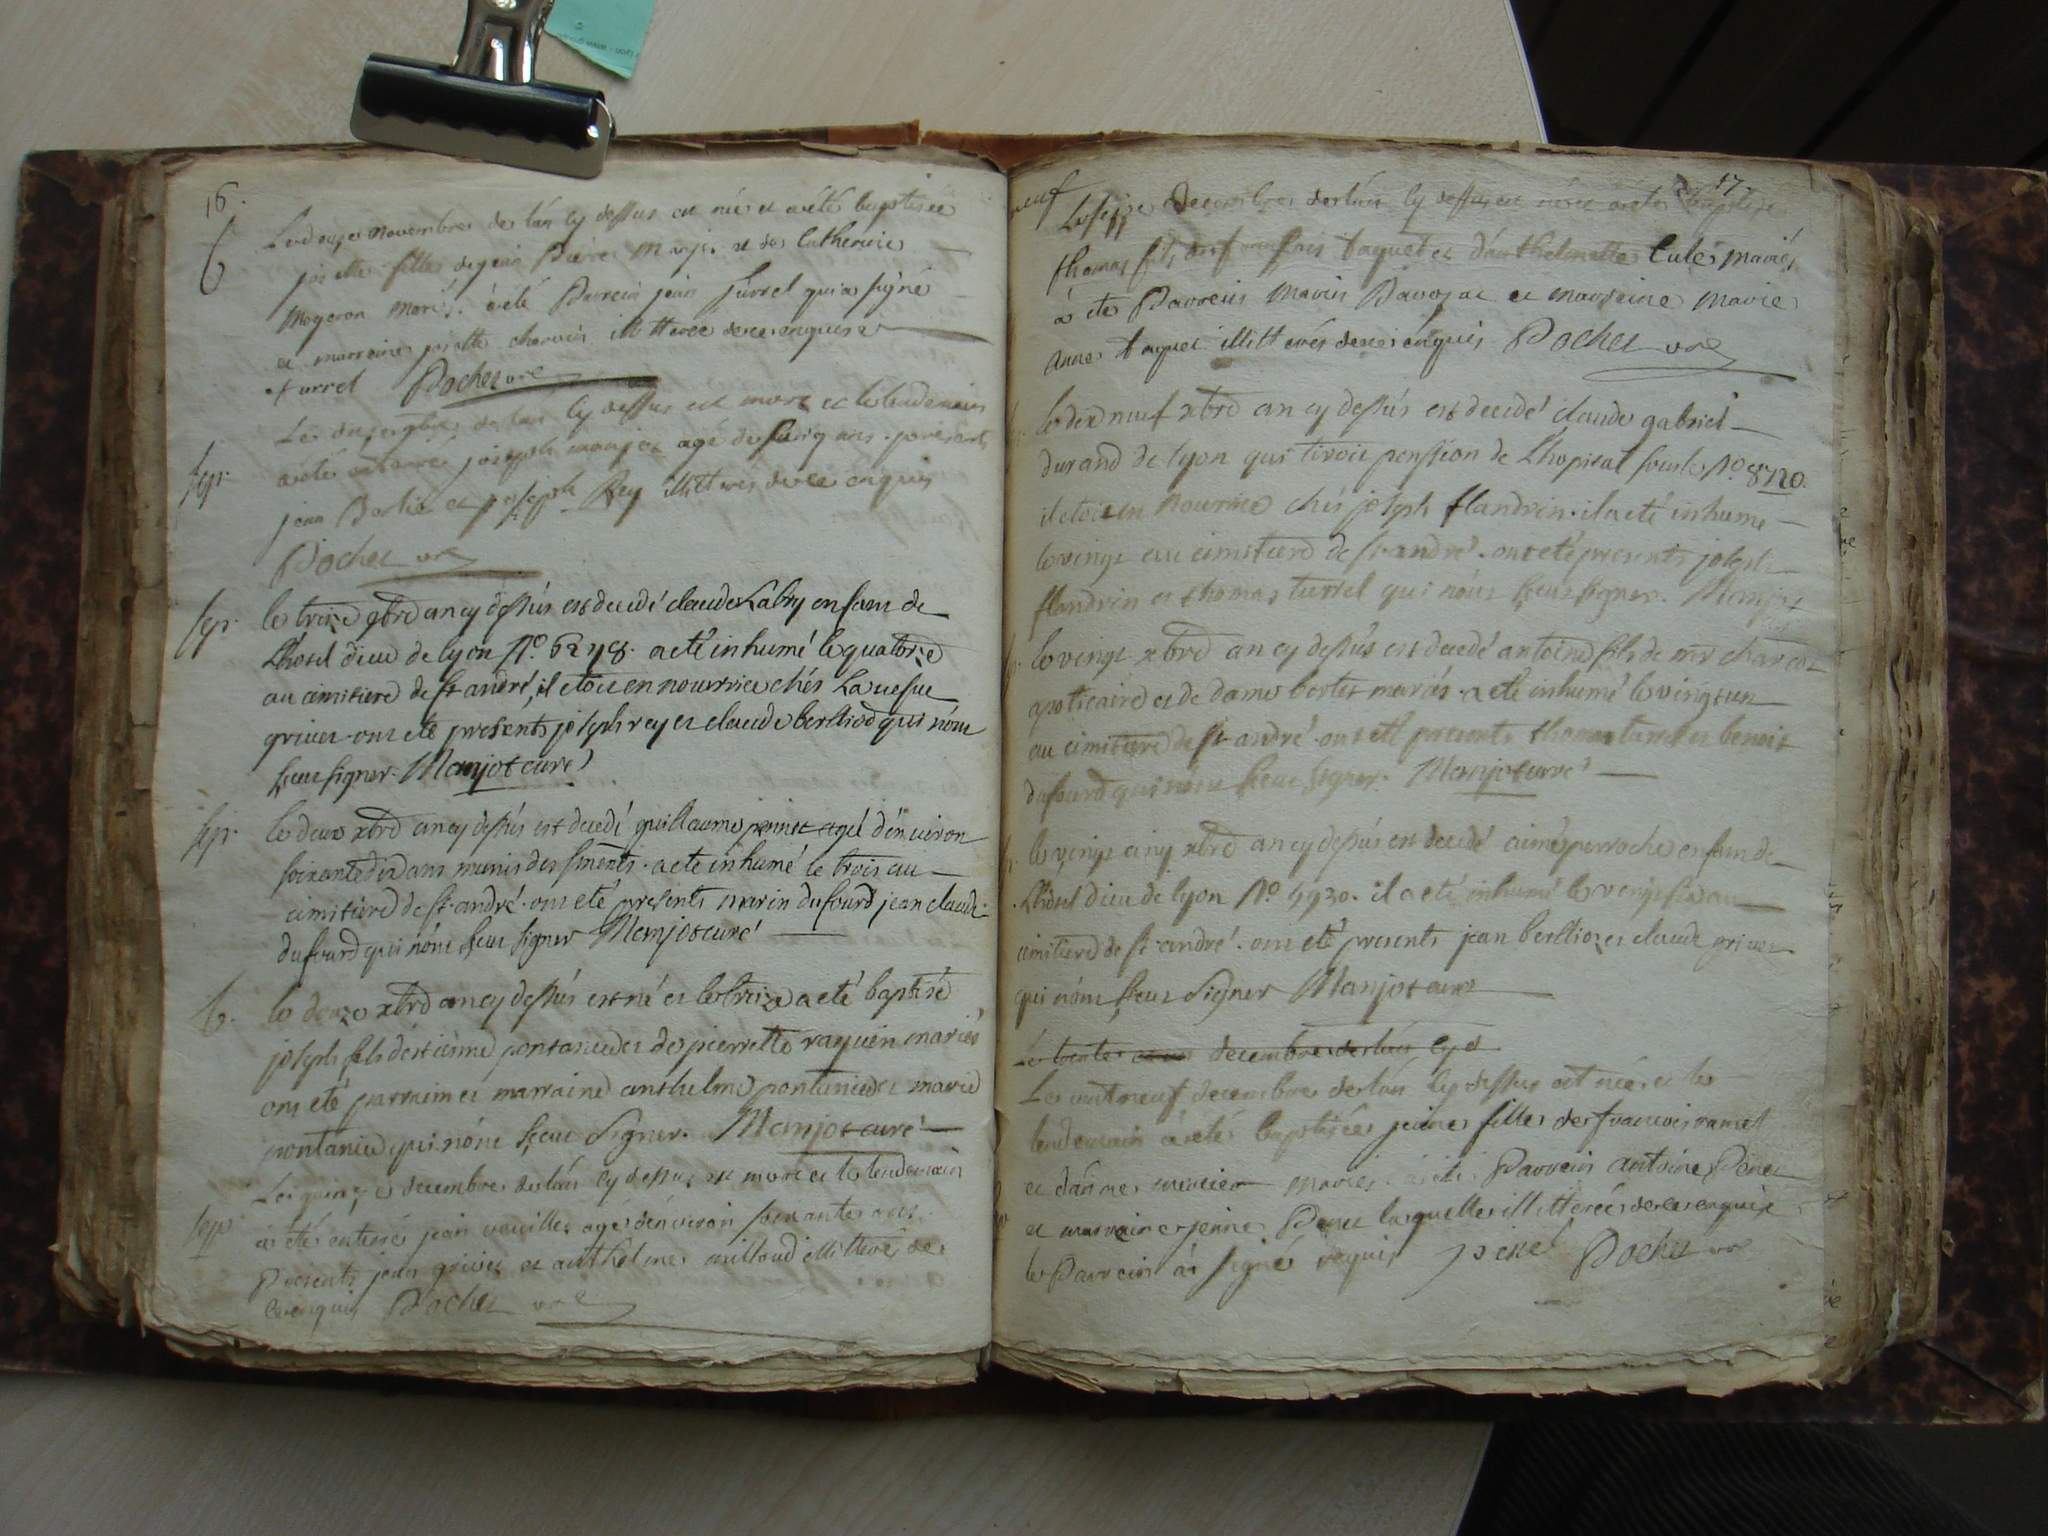 16.
b
Le douze novembre de lan cy dessus est née et a été baptisée
josette fille de jean Pierre et de Catherine
Mogeron mariés. a été Parrein jean Turrel qui a signé
et marreine josette chervin illitterée de ce enquise
turrel Pochet vre
Le 9bre de lan cy dessus est mort et le lendemain
a été enterré joseph monjot agé de cinq ans. présents
sep.
jean et joseph Rey illitterés de ce enquis
Pochet vre
sep. le treize 9bre an cy dessus est decedé claude Labry enfant de
L'hotel dieu de lyon No. 6278. a eté inhumé le quatorze
au cimitiere de st andré, il etoit en nourrice chés La veuve
grivet. ont eté presents joseph rey et claude berthod qui nónt
sceu signer. Monjot curé
sep. le deux xbre an cy dessus est decedé guillaume agé dénviron
soixante dix ans munis des smènts. a eté inhumé le trois au
cimitiere de st. andré. ont eté presents marin dufourd jean claude
dufourd qui nónt sceu signer Monjot curé
b. le douze xbre an cy dessus est né et le treize a eté baptisé
joseph fils détienne pontanied et de pierrette raquin mariés
ont eté parrain et marraine anthelme pontanied et marie
pontanied qui nónt sceu signer. Monjot curé
Le quinze decembre de lan cy dessus est mort et le lendemain
sep. a été enterré jean agé dénviron soixante ans.
Presents jean grivet et anthelme millioud illitteré de
ce enquis Pochet vre
17.
Le seize decembre de lan cy dessus est né et a été baptisé
thomas fils de françois taquet et dánthelmette Culet mariés
a été Parrein Marin Pavozat et marreine marie
anne taquet illitterés de ce enquis Pochet vre
le dix neuf xbre an cy dessus est decedé claude gabriel
durand de lyon qui tiroit pension de L'hopital sous le No. 8720.
il etoit en nourrice chés joseph flandrin. il a eté inhumé
le vingt au cimitiere de st andré. ont eté presents joseph
flandrin et thomas turrel qui nónt sceu signer. Monjot
le vingt xbre an cy dessus est decedé antoine fils de mr charcot
apoticaire et de dame bertet mariés. a eté inhumé le vingt un
au cimitiere de st andré. ont eté presents thomas turrel et benoit
dufourd qui nónt sceu signer. Monjot curé
le vingt cinq xbre an cy dessus est decedé aimé perroche enfant de
L'hotel dieu de lyon No. 4930. il a eté inhumé le vingt six au
cimitiere de st andré. ont eté presents jean berthoz et claude grivet
qui nónt sceu signer Monjot curé
Le trente decembre de lan cy d
Le vint neuf decembre de lan cy dessus est née et le
lendemain a été baptisée jeanne fille de françois ramel
et dánne mercier mariés. a été Parrein antoine Penet
et marreine jeanne Penet laquelle illitterée de ce enquise
le Parrein a signé requis penet Pochet vre